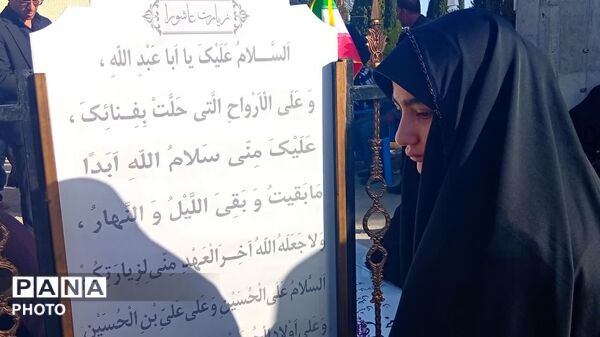 زیارت عاشورا
اَلسَّلامُ عَلَیْکَ یا اَبا عَبْدِ اللّٰهِ ،
وَ عَلَی الْاَرْواحِ الَّتی حَلَّتْ بِفِنائِکَ ،
عَلَیْکَ مِنّی سَلامُ اللّٰهِ اَبَدًا
مَا بَقیتُ وَ بَقِیَ اللَّیْلُ وَ النَّهارُ ،
وَ لا جَعَلَهُ اللّٰهُ آخِرَ الْعَهْدِ مِنّی لِزِیارَتِکُمْ
اَلسَّلامُ عَلَی الْحُسَیْنِ وَ عَلی عَلیِّ بْنِ الْحُسَیْنِ
وَ عَلی اَوْلادِ
PANA
PHOTO